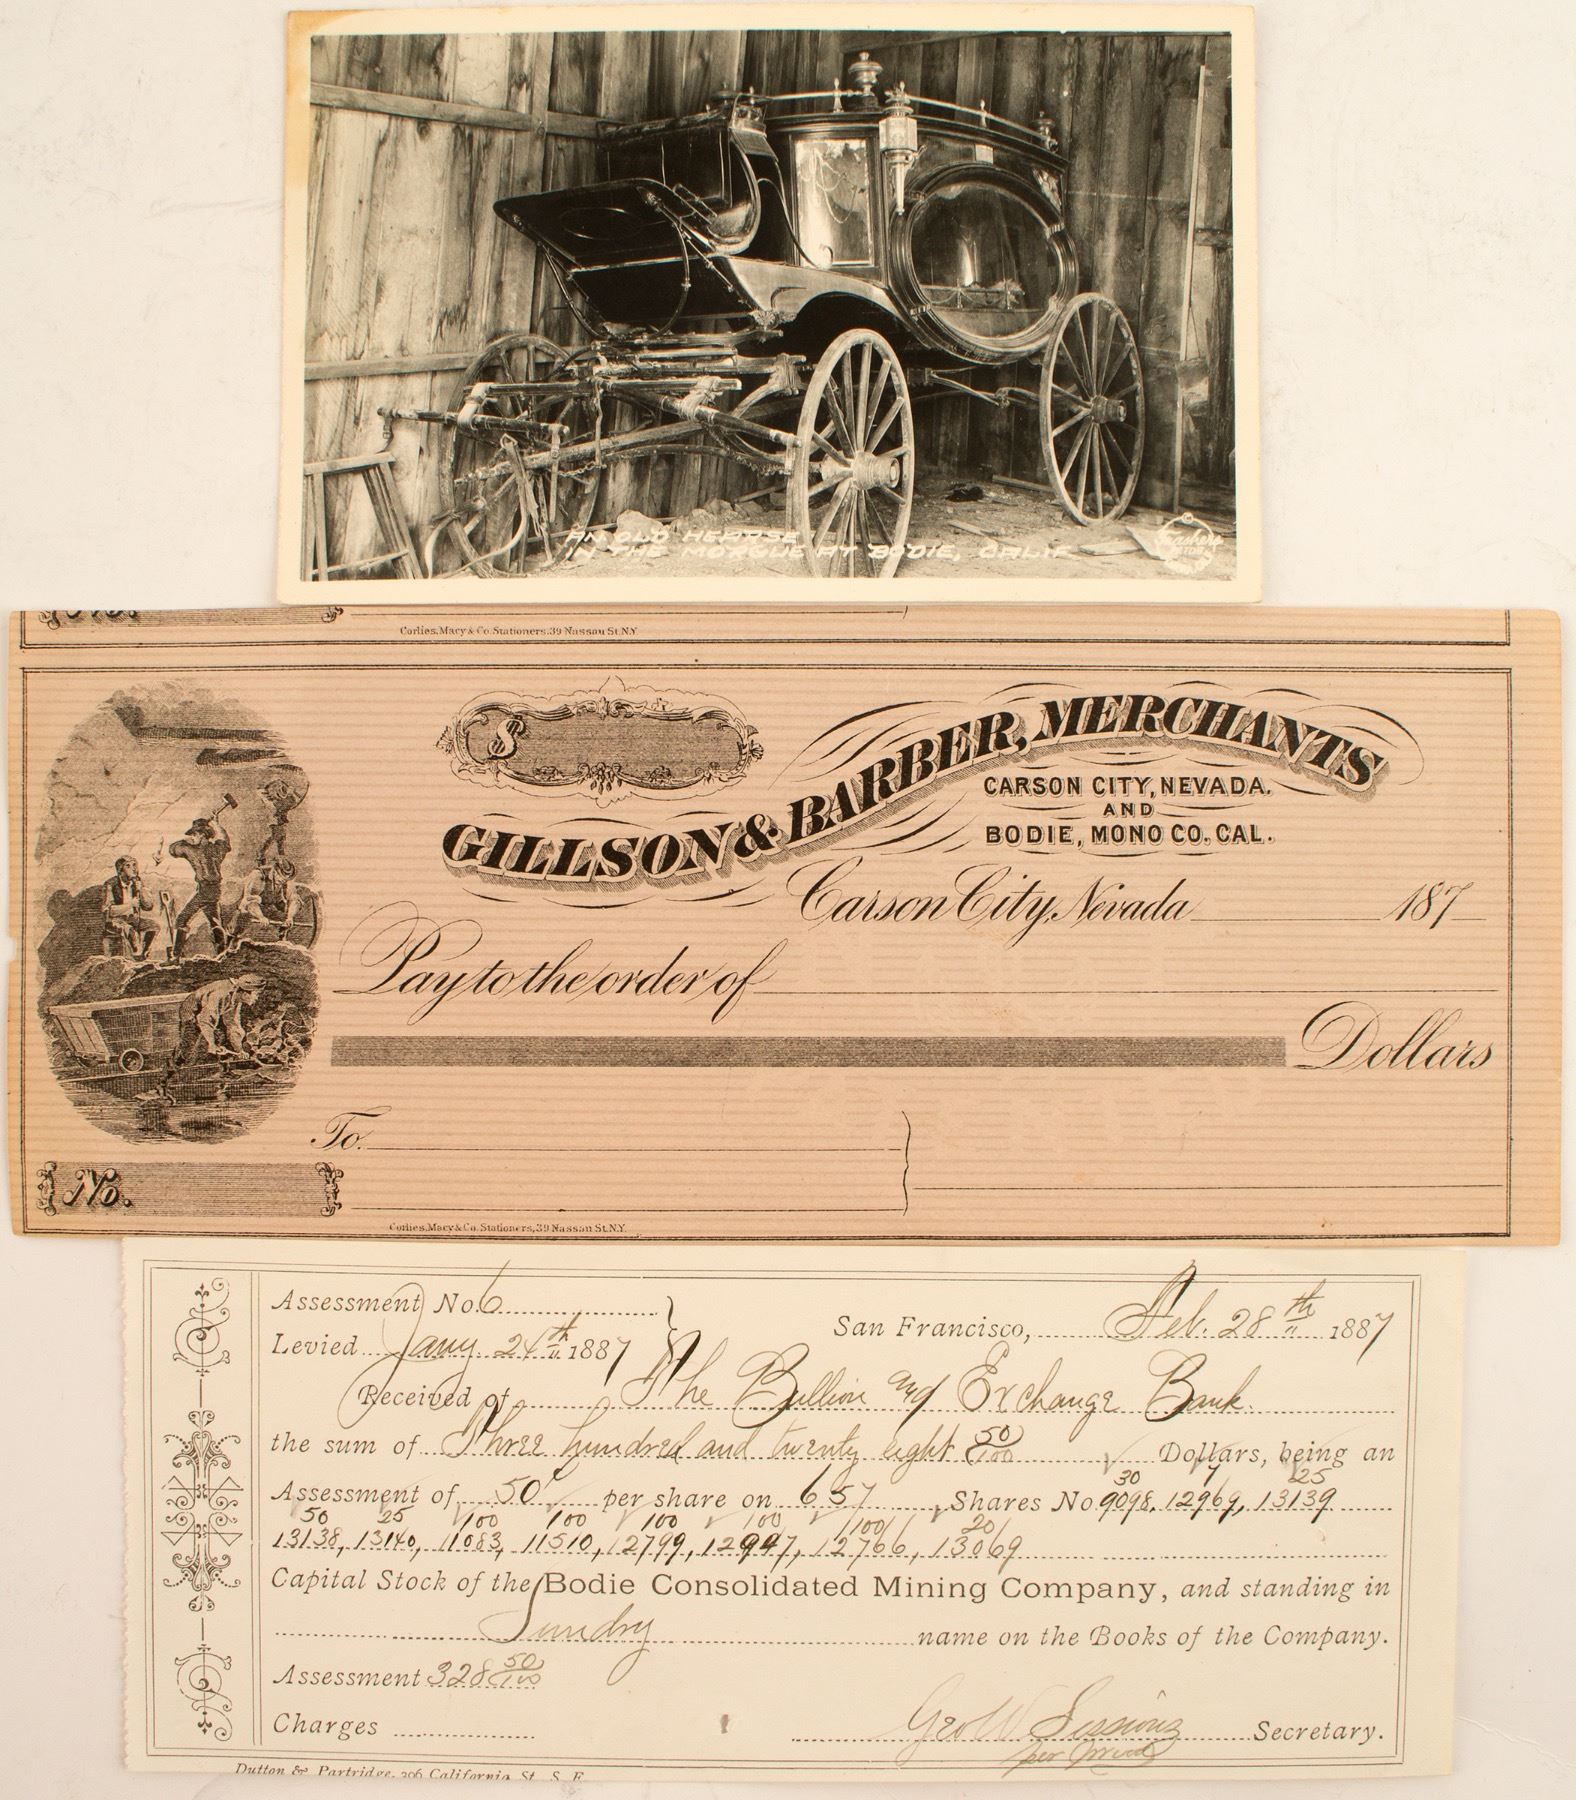 AN OLD HEARSE
IN THE MORGUE AT BODIE, CALIF
©
Frashers
No.
Corlies, Macy & Co. Stationers, 39 Nassau St. N.Y.
$
GILLSON & BARBER, MERCHANTS
CARSON CITY, NEVADA.
AND
BODIE, MONO CO. CAL.
Carson City, Nevada 187
Pay to the order of
Dollars
To
No.
Corlies, Macy & Co. Stationers, 39 Nassau St. N.Y.
Assessment No. 6
San Francisco, Feb. 28th 1887
Levied Jany. 24th 1887
Received of The Bullion and Exchange Bank
the sum of Three hundred and twenty eight 50/100 Dollars, being an
Assessment of 50c per share on 657 Shares No. 9098, 12969, 13139
30 7 25
50 25 100 100 100 100 100 20
13138, 13140, 11083, 11510, 12799, 12947, 12766, 13069
Capital Stock of the Bodie Consolidated Mining Company, and standing in
Sundry name on the Books of the Company.
Assessment 328 50/100
Charges
Geo W Sessions Secretary.
per
Dutton & Partridge, 206 California St. S. F.